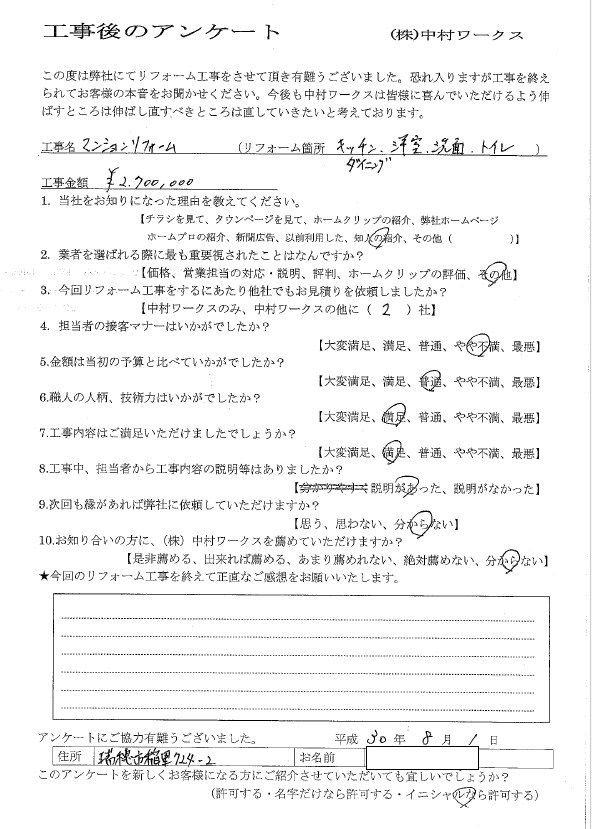 工事後のアンケート (株)中村ワークス
この度は弊社にてリフォーム工事をさせて頂き有難うございました。恐れ入りますが工事を終え
られてお客様の本音をお聞かせください。今後も中村ワークスは皆様に喜んでいただけるよう伸
ばすところは伸ばし直すべきところは直していきたいと考えております。
工事名 マンションリフォーム (リフォーム箇所 キッチン.洋室.洗面.トイレ )
ダイニング
工事金額 ¥2.700,000
1. 当社をお知りになった理由を教えてください。
【チラシを見て、タウンページを見て、ホームクリップの紹介、弊社ホームページ
ホームプロの紹介、新聞広告、以前利用した、知人の紹介、その他( )】
2. 業者を選ばれる際に最も重要視されたことはなんですか?
【価格、営業担当の対応・説明、評判、ホームクリップの評価、その他】
3. 今回リフォーム工事をするにあたり他社でもお見積りを依頼しましたか?
【中村ワークスのみ、中村ワークスの他に( 2 )社】
4. 担当者の接客マナーはいかがでしたか?
【大変満足、満足、普通、やや不満、最悪】
5.金額は当初の予算と比べていかがでしたか?
【大変満足、満足、普通、やや不満、最悪】
6.職人の人柄、技術力はいかがでしたか?
【大変満足、満足、普通、やや不満、最悪】
7.工事内容はご満足いただけましたでしょうか?
【大変満足、満足、普通、やや不満、最悪】
8.工事中、担当者から工事内容の説明等はありましたか?
【分かりやすく説明があった、説明がなかった】
9.次回も縁があれば弊社に依頼していただけますか?
【思う、思わない、分からない】
10.お知り合いの方に、(株)中村ワークスを薦めていただけますか?
【是非薦める、出来れば薦める、あまり薦めれない、絶対薦めない、分からない】
★今回のリフォーム工事を終えて正直なご感想をお願いいたします。
アンケートにご協力有難うございました。 平成 30 年 8 月 1 日
住所 瑞穂市稲里724-2 お名前
このアンケートを新しくお客様になる方にご紹介させていただいても宜しいでしょうか?
(許可する・名字だけなら許可する・イニシャルなら許可する)